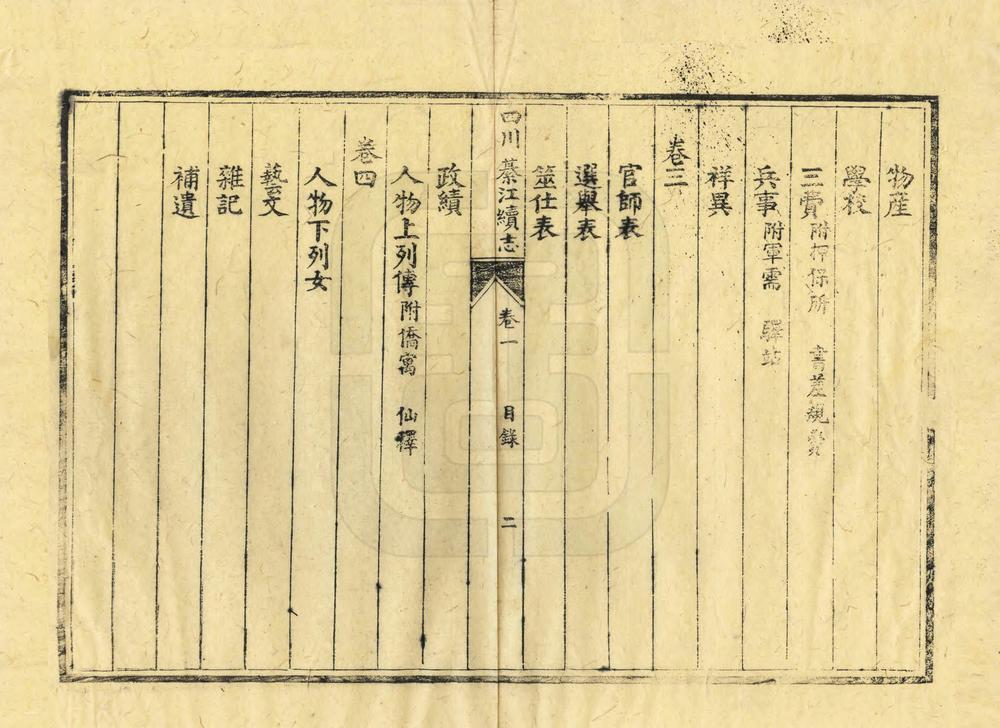 物産
學校
三費附押保所 書差規費
兵事附軍需 驛站
祥異
卷三
官師表
選舉表
筮仕表
四川綦江續志 卷一 目錄 二
政績
人物上列傳附僑寓 仙釋
卷四
人物下列女
藝文
雜記
補遺